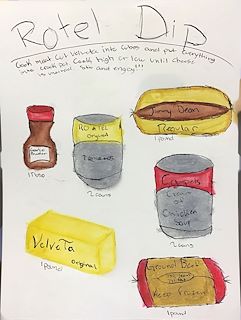 Rotel Dip
Cook meat Cut Velveta into cubes and put everything
into crock pot Cook high or low until cheese
is melted. Stir and enjoy!!!
Jimmy Dean
Regular
1 pound
RO TEL
original
Tomatoes
2 cans
Garlic
Powder
1 tbso
Cream
of
Chicken
Soup
2 cans
Velveta
original
1 pound
Ground Beef
Keep Frozen
1 pound